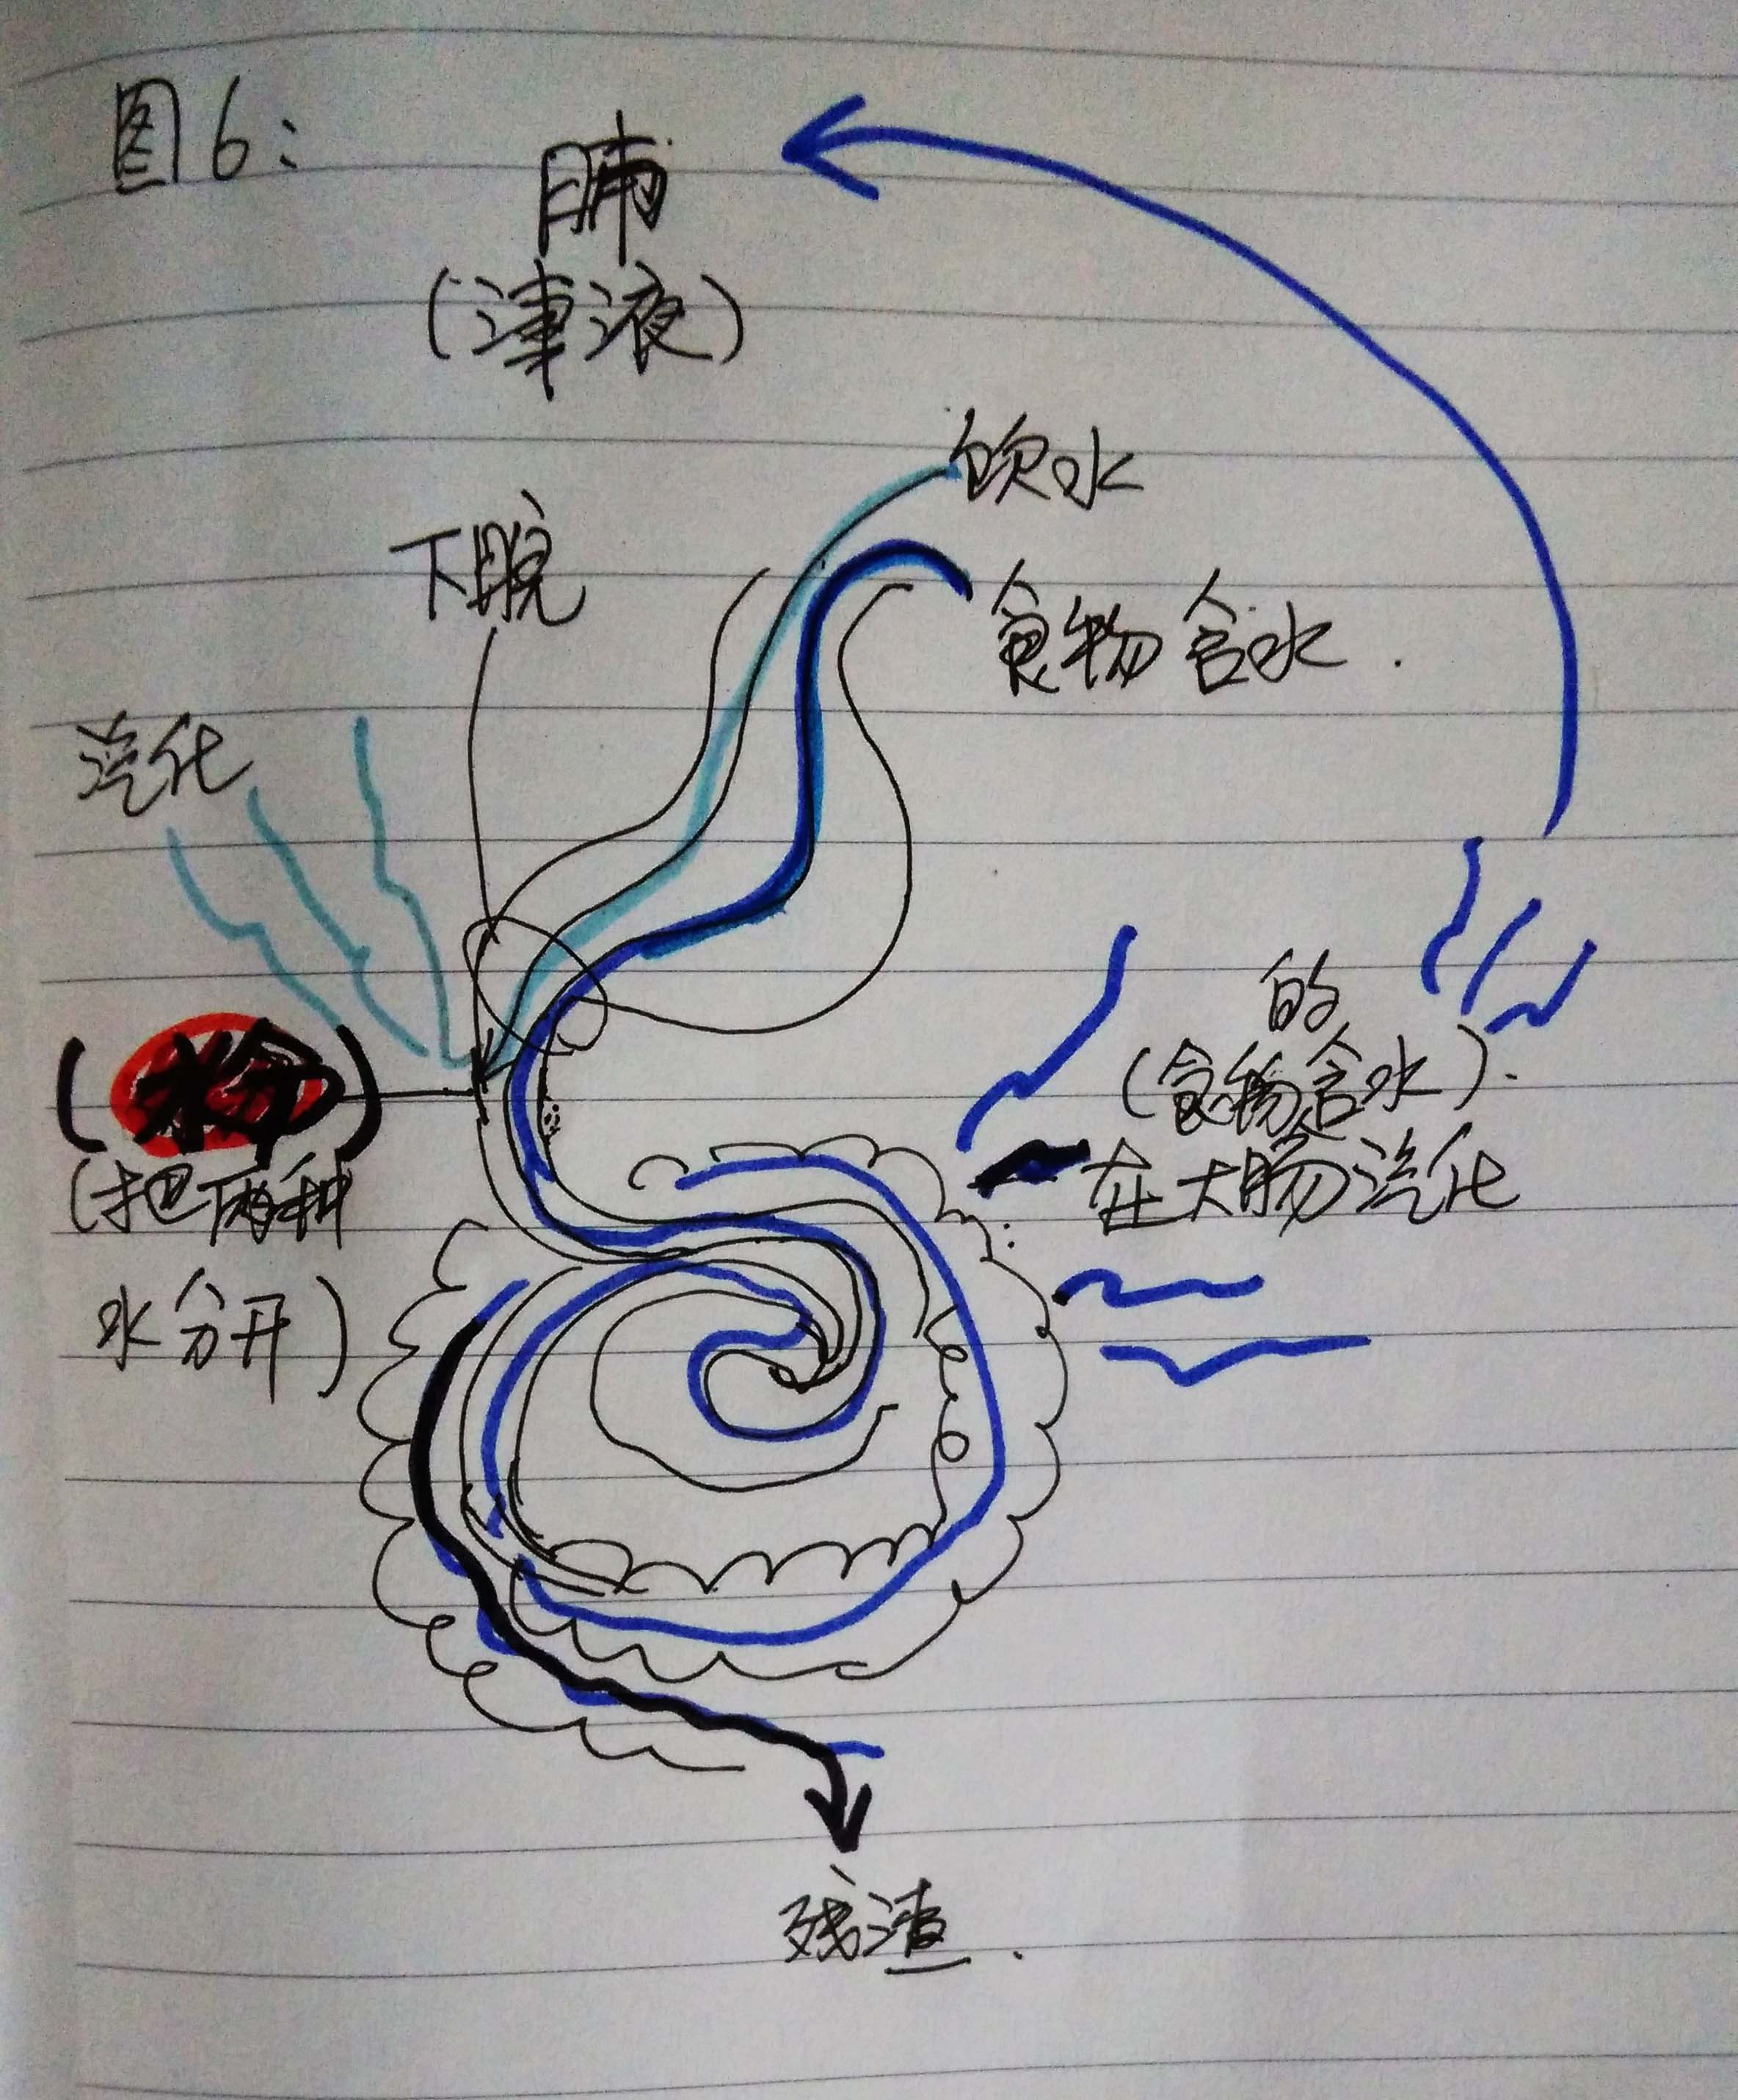 图6:
肺
(津液)
饮水
下脘
食物含水.
汽化
的
(食物含水).
在大肠汽化
(水分)
(把两种
水分开)
残渣.